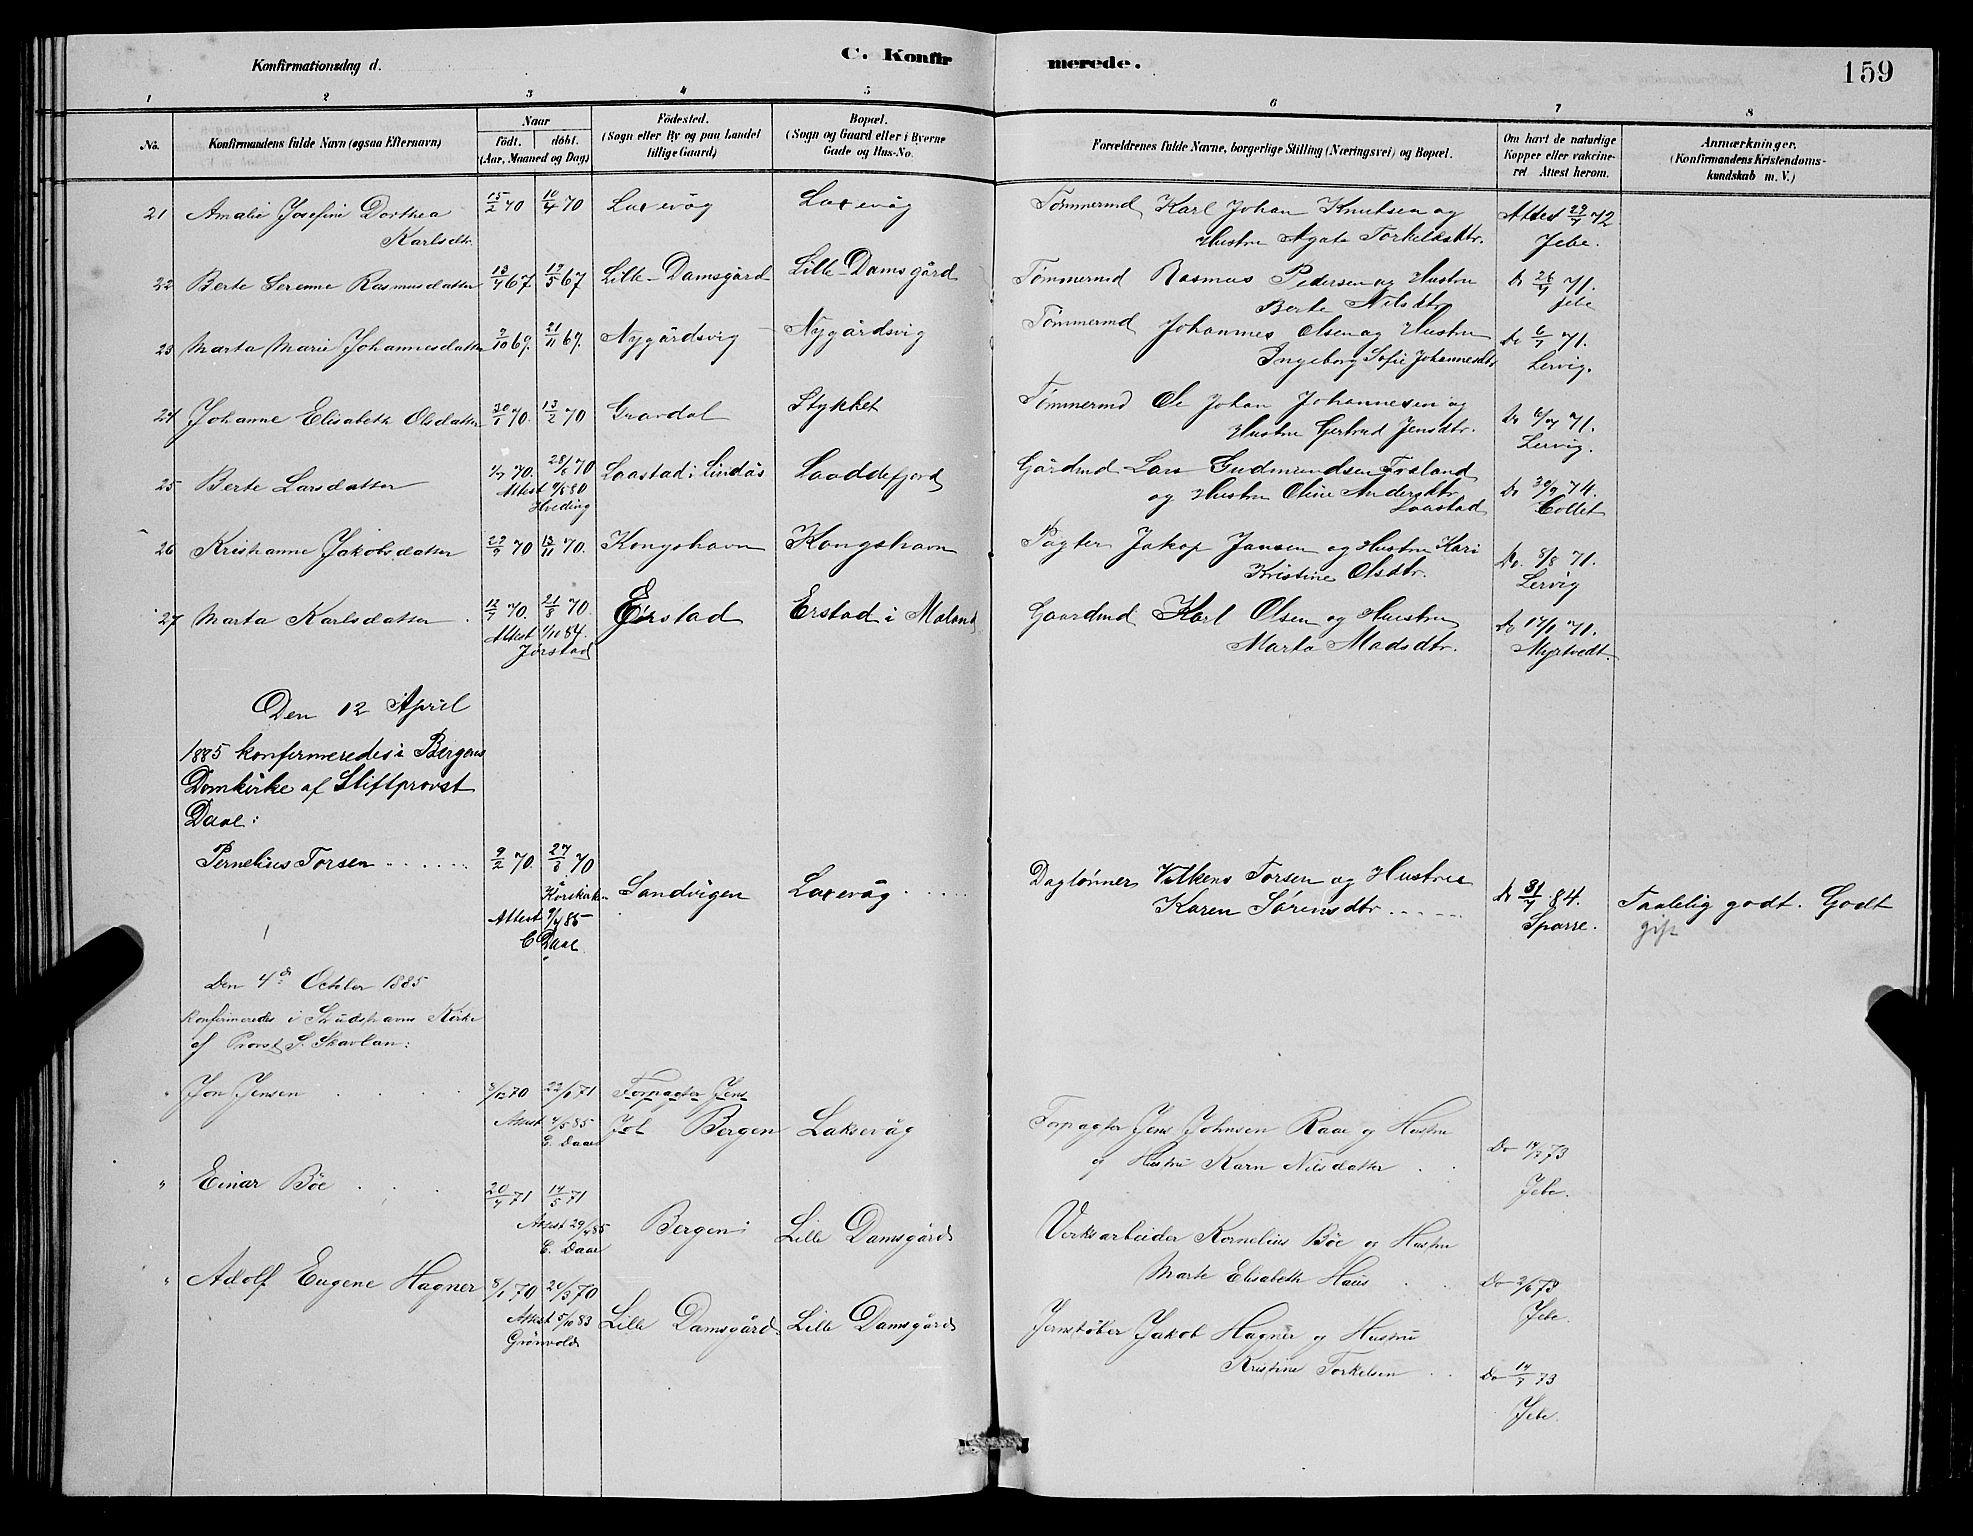 Konfirmationsdag d. C. Konfir merede. 159
1 2 3 4 5 6 7 8
No. Konfirmandens fulde Navn (ogsaa Efternavn) Naar Födested. Bopæl. Forældrenes fulde Navne, borgerlige Stilling (Næringsvei) og Bopæl. Om havt de naturlige Anmærkninger.
födt. döbt. (Sogn eller By og paa Landet (Sogn og Gaard eller i Byerne Kopper eller vakcine- (Konfirmandens Kristendoms-
(Aar, Maaned og Dag) tillige Gaard) Gade og Hus-No. ret Attest herom. kundskab m. V.)
21 Amalie Josefine Dorthea 15/2 70 10/4 70 Laxevåg Laxevåg Tømmermd Karl Johan Knutsen og Attest 29/7 72
Karlsdtr. Hustru Agate Torkeldsdtr. Jebe.
22 Berte Serenne Rasmusdatter 13/4 67 19/5 67 Lille-Damsgård Lille-Damsgård Tømmermd Rasmus Pedersen og Hustru Do 26/7 71.
Berte Nilsdtr Jebe
23 Marta Marie Johannesdatter 9/10 69. 21/11 69. Nygårdsvig Nygårdsvig Tømmermd Johannes Olsen og Hustru Do 6/7 71.
Ingeborg Sofie Johannesdtr Lervig.
24 Johanne Elisabeth Olsdatter 30/1 70. 13/2 70 Gravdal Stykket Tømmermd Ole Johan Johannesen og Do 6/7 71.
Hustru Gertrud Jensdtr. Lervig.
25 Berte Larsdatter 1/7 70. 28/8 70 Laastad i Lindås Laaddefjord Gårdmd Lars Gudmundsen
Attest 9/8 80 og Hustru Oline Andersdtr. Do 30/9 74.
Hveding Laastad Collet
26 Kristianne Jakobsdatter 29/9 70 13/11 70. Kongshavn Kongshavn Pagter Jakop Jansen og Hustru Kari Do. 8/8 71.
Kristine Olsdtr. Lervig
27 Marta Karlsdatter 12/7 70. 21/8 70. Erstad Erstad i Maland Gaardmd Karl Olsen og Hustru Do 17/1 71.
Attest 1/10 84. Marta Madsdtr. Myrtvedt.
Jørstad
Den 12 April
1885 konfirmeredes i Bergens
Domkirke af Stiftprovst
Daae:
Pernelius Torsen 9/2 70. 27/3 70 Daglønner Vilkens Torsen og Hustru
Korskirken Sandvigen Laxevåg Karen Sørensdtr. Do 31/7 84. Taalelig godt. Godt
Attest 9/4 85 Sparre.
C Daae.
Den 4de October 1885
Konfirmeredes i Kirke
af Provst S. Skavlan:
" Jon Jensen 3/12 70 22/1 71 Forpagter Jens
Attest 4/5 85 Bergen Laksevåg Forpagter Jens Johnsen Raae og Hustru
E. Daae og Hustru Karn Nilsdatter Do 14/7 73
Jebe.
" Einar Böe 20/4 71 14/5 71
Attest 29/4 85 Bergen Lille Damsgård Verksarbeider Kornelius Böe og Hustru
E. Daae Marte Elisabeth Haus Do 2/6 73
Jebe.
" Adolf Eugene Hagner 8/1 70 20/3 70
Attest 5/10 83 Lille Damsgård Lille Damsgård Jernstøber Jakob Hagner og Hustru
Grönvold Kristine Torkelsen Do 14/7 73
Jebe.